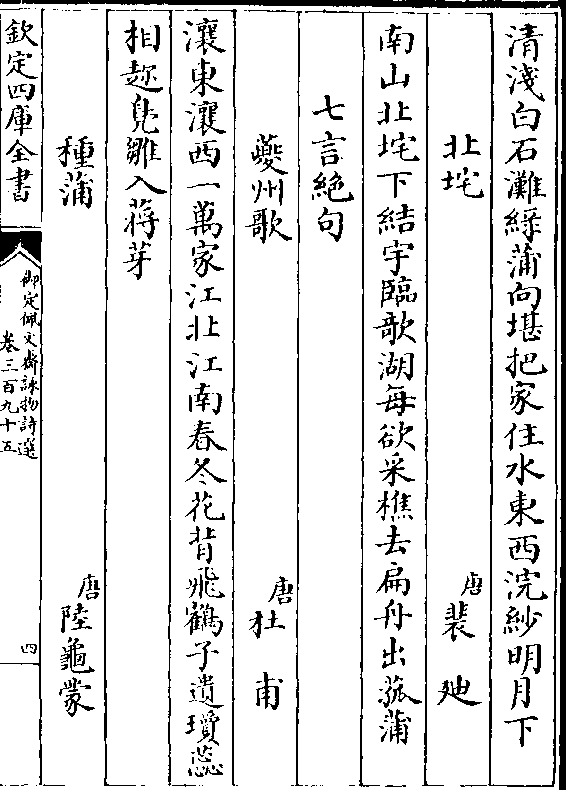 清淺白石灘綠蒲向堪把家住水東西浣紗明月下
北垞 唐裴迪
南山北垞下結宇臨歌湖每欲采樵去扁舟出菰蒲
七言絕句
夔州歌 唐杜甫
瀼東瀼西一萬家江北江南春冬花背飛鶴子遺瓊蕊
相趂鳧雛入蔣芽
種蒲 唐陸龜蒙
欽定四庫全書
御定佩文齋詠物詩選
卷三百九十五
四